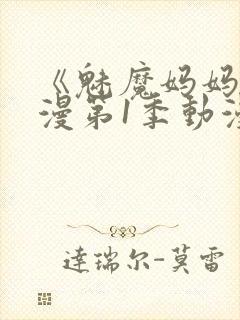 《魅魔妈妈
漫第1季動漫
達瑞尔-莫雷